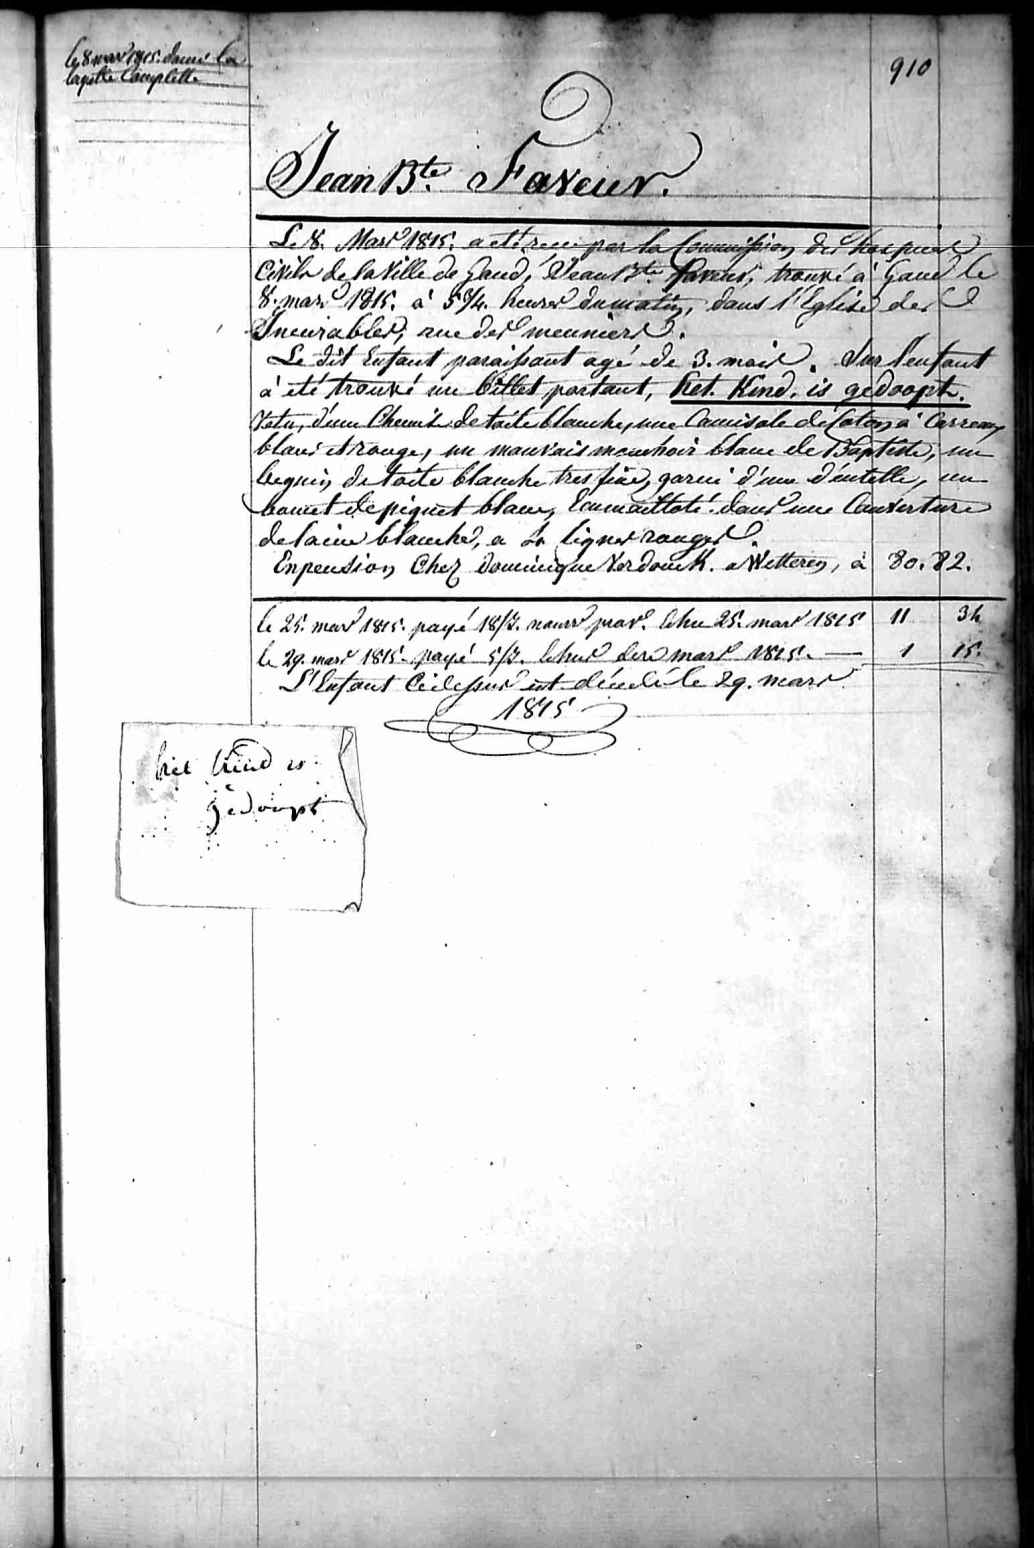 le 8 mars 1815. donné la
layette Complette
910
Jean Bte. Faveur.
Le 8. Mars 1815. a eté recu par la Commission des hospices
Civils de la Ville de Gand, Jean Bte. Faveur, trouvé à Gand le
8. mars 1815. à 5 3/4. heures du matin, dans l'Eglise des
Incurables, rue des meuniers.
Le dit Enfant paraissant agé de 3. mois. Sur l'enfant
à été trouvé un billet portant, het. Kind. is gedoopt.
Vetu, d'une Chemise de toile blanche, une Camisole de Coton à Carreaux
blancs et rouge, un mauvais mouchoir blanc de Baptiste, un
beguin de toile blanche tres fine, garni d'une d'entelle, un
bonnet de piquet blanc, Emmailloté dans une Couverture
de laine blanche, a lignes rouges.
En pension Chez Dominique Verdonck. a Wetteren, à 80. 82.
le 25. mars 1815. payé 18/J. nourr prov. Echue 25. mars 1815 11 34
le 29. mars 1815. payé 5/J. Echus mars 1815. — 1 15.
L'Enfant Cidessus est décedé le 29. mars
1815
het kind is
gedoopt